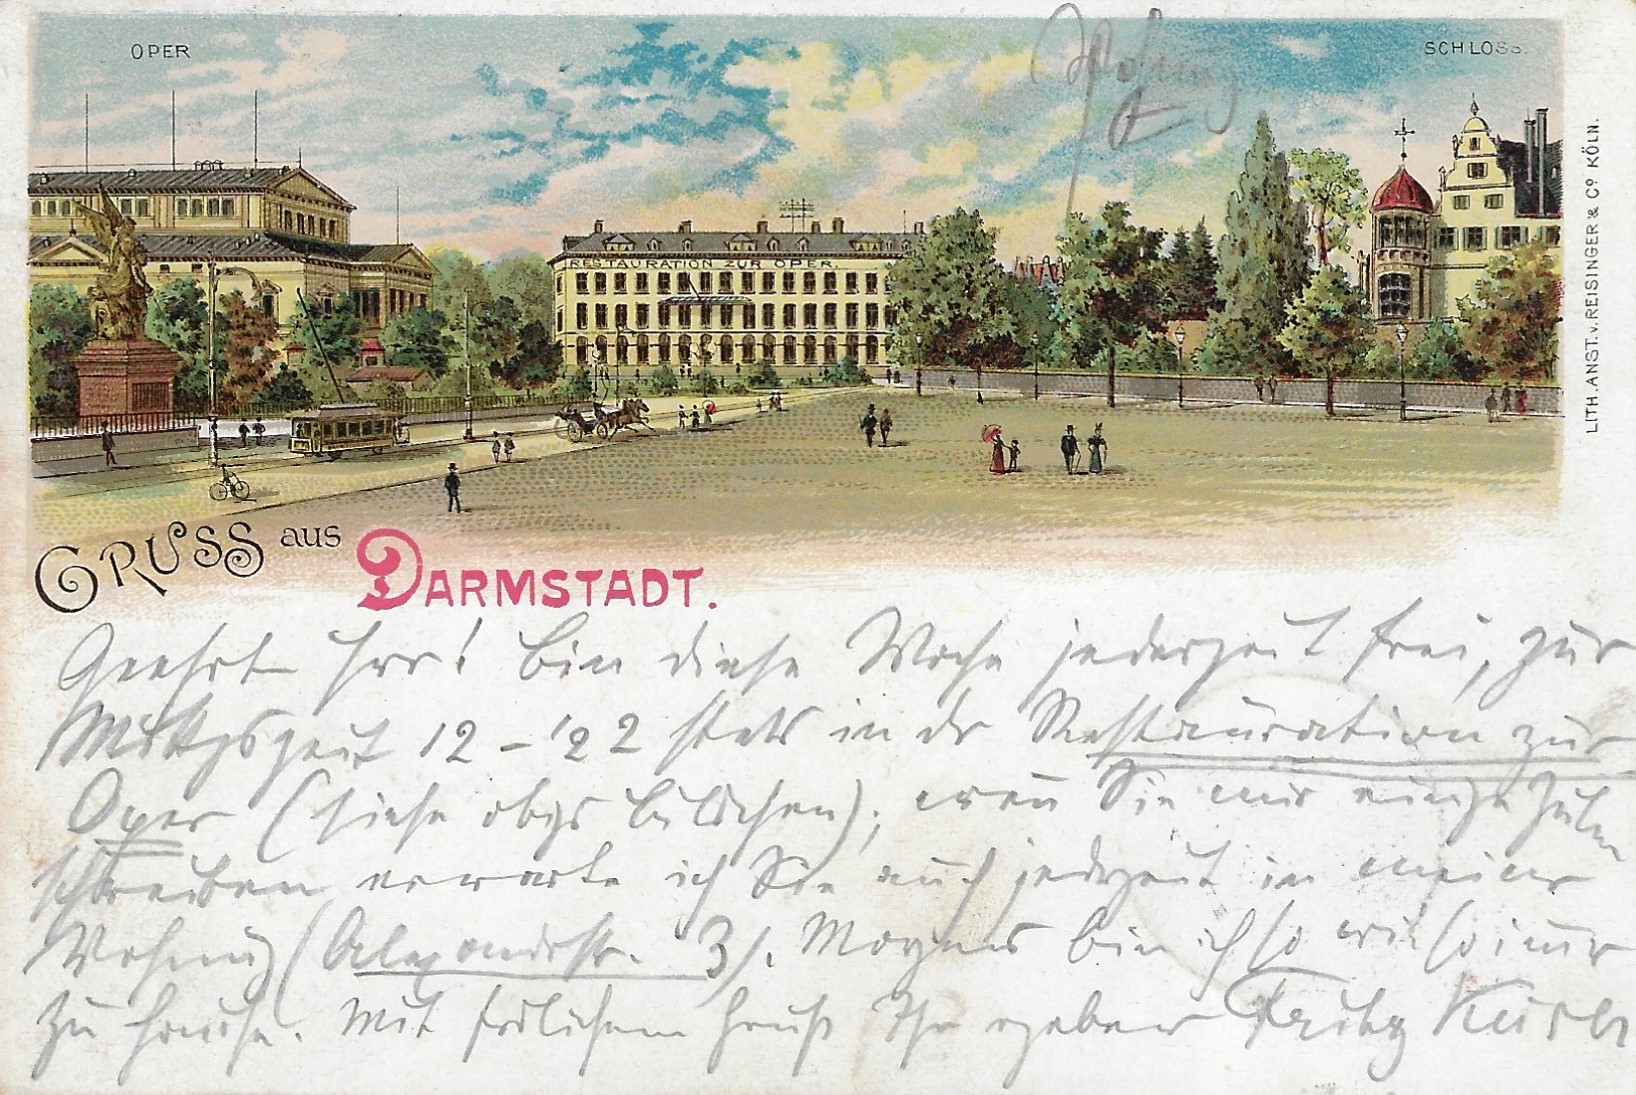 OPER
SCHLOSS.
RESTAURATION ZUR OPER.
LITH. ANST. v. REISINGER & Co KÖLN.
GRUSS aus
DARMSTADT.
Geehrt Herr! bin diese Woche jederzeit frei, zur
Mittgszeit 12 - 2 stets in dr Restauration zur
Oper (siehe obgs Bildchen); wenn Sie mir einige Zeiln
schreiben erwarte ich Sie auch jederzeit in meiner
Wohnung (Alexanderstr. 3). Morgens bin ich so wie so immr
zu Hause. Mit frölichem Gruß Ihr ergebner Fritz